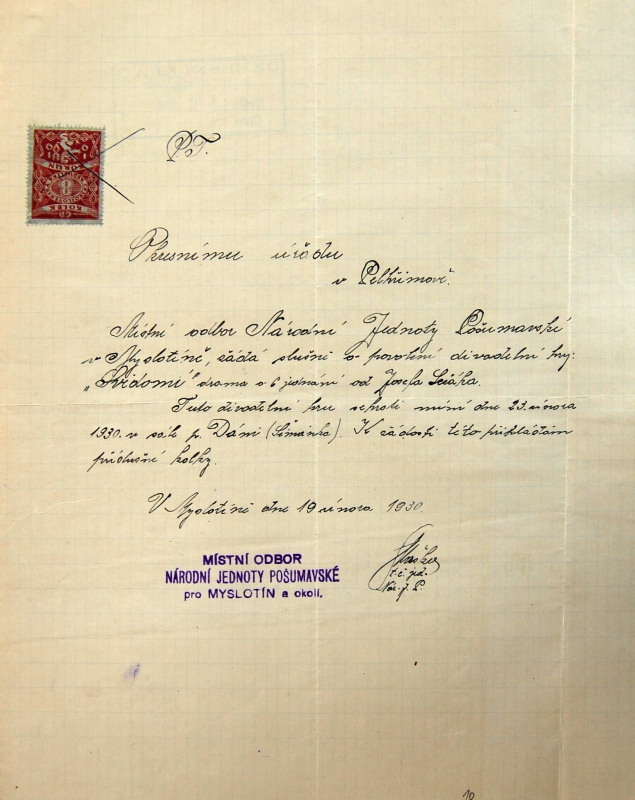 P.T.
Okresnímu úřadu
v Pelhřimově.
Místní odbor Národní Jednoty Pošumavské
v Myslotíně, žádá slušně o povolení divadelní hry:
„Svědomí" drama o 6 jednání od Josefa
Tuto divadelní hru sehrati míní dne 23. února
1930. v sále p. Dáni (Šimánka). K žádosti této přikládám
příslušné kolky.
V Myslotíně dne 19 února 1930.
MÍSTNÍ ODBOR
NÁRODNÍ JEDNOTY POŠUMAVSKÉ
pro MYSLOTÍN a okolí.
t. č. jed.
Nár. j. P.
KOLEK
8
KORUN
10